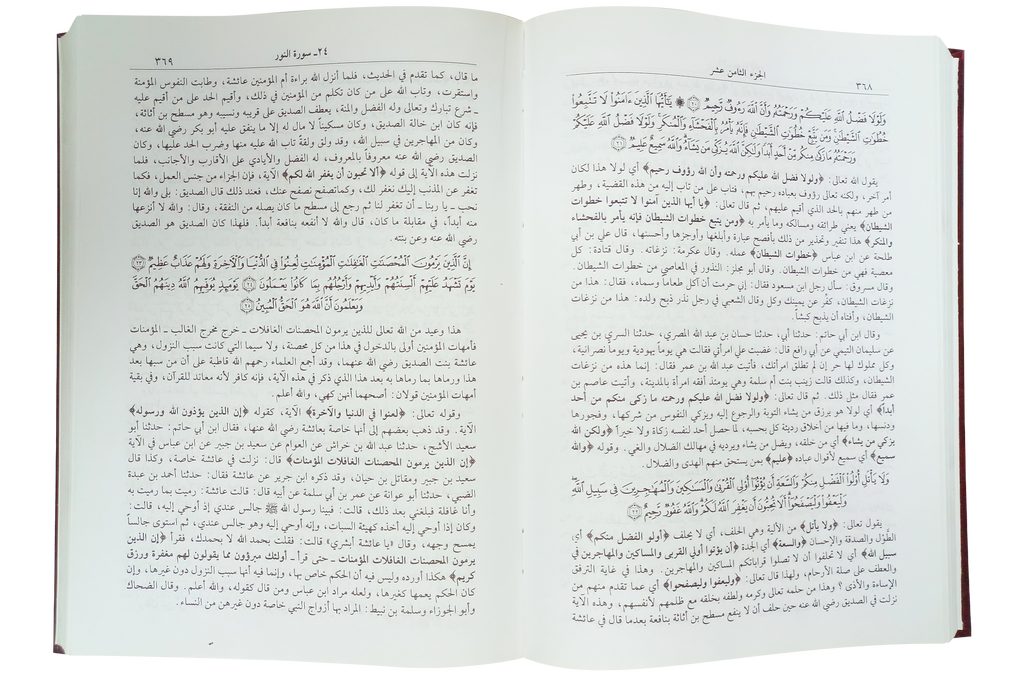 الجزء الثامن عشر
٣٦٨
وَلَوْلَا فَضْلُ اللَّهِ عَلَيْكُمْ وَرَحْمَتُهُ وَأَنَّ اللَّهَ رَءُوفٌ رَّحِيمٌ ۝٢٠ يَٰٓأَيُّهَا الَّذِينَ ءَامَنُوا لَا تَتَّبِعُوا
خُطُوَٰتِ الشَّيْطَٰنِ وَمَن يَتَّبِعْ خُطُوَٰتِ الشَّيْطَٰنِ فَإِنَّهُ يَأْمُرُ بِالْفَحْشَاءِ وَالْمُنكَرِ وَلَوْلَا فَضْلُ اللَّهِ عَلَيْكُمْ
وَرَحْمَتُهُ مَا زَكَىٰ مِنكُم مِّنْ أَحَدٍ أَبَدًا وَلَٰكِنَّ اللَّهَ يُزَكِّي مَن يَشَاءُ وَاللَّهُ سَمِيعٌ عَلِيمٌ ۝٢١
يقول الله تعالى: ﴿ولولا فضل الله عليكم ورحمته وأن الله رؤوف رحيم﴾ أي لولا هذا لكان
أمر آخر، ولكنه تعالى رؤوف بعباده رحيم بهم، فتاب على من تاب إليه من هذه القضية، وطهر
من طهر منهم بالحد الذي أقيم عليهم، ثم قال تعالى: ﴿يا أيها الذين آمنوا لا تتبعوا خطوات
الشيطان﴾ يعني طرائقه ومسالكه وما يأمر به ﴿ومن يتبع خطوات الشيطان فإنه يأمر بالفحشاء
والمنكر﴾ هذا تنفير وتحذير من ذلك بأفصح عبارة وأبلغها وأوجزها وأحسنها، قال علي بن أبي
طلحة عن ابن عباس ﴿خطوات الشيطان﴾ عمله. وقال عكرمة: نزغاته. وقال قتادة: كل
معصية فهي من خطوات الشيطان. وقال أبو مجلز: النذور في المعاصي من خطوات الشيطان.
وقال مسروق: سأل رجل ابن مسعود فقال: إني حرمت أن آكل طعاماً وسماه، فقال: هذا من
نزغات الشيطان، كفِّر عن يمينك وكل وقال الشعبي في رجل نذر ذبح ولده: هذا من نزغات
الشيطان، وأفتاه أن يذبح كبشاً.
وقال ابن أبي حاتم: حدثنا أبي، حدثنا حسان بن عبد الله المصري، حدثنا السري بن يحيى
عن سليمان التيمي عن أبي رافع قال: غضبت علي امرأتي فقالت هي يوماً يهودية ويوماً نصرانية،
وكل مملوك لها حر إن لم تطلق امرأتك، فأتيت عبد الله بن عمر فقال: إنما هذه من نزغات
الشيطان، وكذلك قالت زينب بنت أم سلمة وهي يومئذ أفقه امرأة بالمدينة، وأتيت عاصم بن
عمر فقال مثل ذلك. ثم قال تعالى: ﴿ولولا فضل الله عليكم ورحمته ما زكى منكم من أحد
أبداً﴾ أي لولا هو يرزق من يشاء التوبة والرجوع إليه ويزكي النفوس من شركها، وفجورها
ودنسها، وما فيها من أخلاق رديئة كل بحسبه، لما حصل أحد لنفسه زكاة ولا خيراً ﴿ولكن الله
يزكي من يشاء﴾ أي من خلقه، ويضل من يشاء ويرديه في مهالك الضلال والغي. وقوله ﴿والله
سميع﴾ أي سميع لأقوال عباده ﴿عليم﴾ بمن يستحق منهم الهدى والضلال.
وَلَا يَأْتَلِ أُولُوا الْفَضْلِ مِنكُمْ وَالسَّعَةِ أَن يُؤْتُوا أُولِي الْقُرْبَىٰ وَالْمَسَٰكِينَ وَالْمُهَٰجِرِينَ فِي سَبِيلِ اللَّهِ
وَلْيَعْفُوا وَلْيَصْفَحُوا أَلَا تُحِبُّونَ أَن يَغْفِرَ اللَّهُ لَكُمْ وَاللَّهُ غَفُورٌ رَّحِيمٌ ۝٢٢
يقول تعالى: ﴿ولا يأتل﴾ من الألية وهي الحلف، أي لا يحلف ﴿أولو الفضل منكم﴾ أي
الطَّوْل والصدقة والإحسان ﴿والسعة﴾ أي الجدة ﴿أن يؤتوا أولي القربى والمساكين والمهاجرين في
سبيل الله﴾ أي لا تحلفوا أن لا تصلوا قراباتكم المساكين والمهاجرين. وهذا في غاية الترفق
والعطف على صلة الأرحام، ولهذا قال تعالى: ﴿وليعفوا وليصفحوا﴾ أي عما تقدم منهم من
الإساءة والأذى؟ وهذا من حلمه تعالى وكرمه ولطفه بخلقه مع ظلمهم لأنفسهم، وهذه الآية
نزلت في الصديق رضي الله عنه حين حلف أن لا ينفع مسطح بن أثاثة بنافعة بعدما قال في عائشة
٢٤ـ سورة النور
٣٦٩
ما قال، كما تقدم في الحديث، فلما أنزل الله براءة أم المؤمنين عائشة، وطابت النفوس المؤمنة
واستقرت، وتاب الله على من كان تكلم من المؤمنين في ذلك، وأقيم الحد على من أقيم عليه
ـ شرع تبارك وتعالى وله الفضل والمنة، يعطف الصديق على قريبه ونسيبه وهو مسطح بن أثاثة،
فإنه كان ابن خالة الصديق، وكان مسكيناً لا مال له إلا ما ينفق عليه أبو بكر رضي الله عنه،
وكان من المهاجرين في سبيل الله، وقد ولق ولقة تاب الله عليه منها وضرب الحد عليها، وكان
الصديق رضي الله عنه معروفاً بالمعروف، له الفضل والأيادي على الأقارب والأجانب، فلما
نزلت هذه الآية إلى قوله ﴿ألا تحبون أن يغفر الله لكم﴾ الآية، فإن الجزاء من جنس العمل، فكما
تغفر عن المذنب إليك نغفر لك، وكما تصفح نصفح عنك، فعند ذلك قال الصديق: بلى والله إنا
نحب ـ يا ربنا ـ أن تغفر لنا ثم رجع إلى مسطح ما كان يصله من النفقة، وقال: والله لا أنزعها
منه أبداً، في مقابلة ما كان، قال والله لا أنفعه بنافعة أبداً. فلهذا كان الصديق هو الصديق
رضي الله عنه وعن بنته.
إِنَّ الَّذِينَ يَرْمُونَ الْمُحْصَنَٰتِ الْغَٰفِلَٰتِ الْمُؤْمِنَٰتِ لُعِنُوا فِي الدُّنْيَا وَالْآخِرَةِ وَلَهُمْ عَذَابٌ عَظِيمٌ ۝٢٣
يَوْمَ تَشْهَدُ عَلَيْهِمْ أَلْسِنَتُهُمْ وَأَيْدِيهِمْ وَأَرْجُلُهُم بِمَا كَانُوا يَعْمَلُونَ ۝٢٤ يَوْمَئِذٍ يُوَفِّيهِمُ اللَّهُ دِينَهُمُ الْحَقَّ
وَيَعْلَمُونَ أَنَّ اللَّهَ هُوَ الْحَقُّ الْمُبِينُ ۝٢٥
هذا وعيد من الله تعالى للذين يرمون المحصنات الغافلات ـ خرج مخرج الغالب ـ المؤمنات
فأمهات المؤمنين أولى بالدخول في هذا من كل محصنة، ولا سيما التي كانت سبب النزول، وهي
عائشة بنت الصديق رضي الله عنهما، وقد أجمع العلماء رحمهم الله قاطبة على أن من سبها بعد
هذا ورماها بما رماها به بعد هذا الذي ذكر في هذه الآية، فإنه كافر لأنه معاند للقرآن، وفي بقية
أمهات المؤمنين قولان: أصحهما أنهن كهي، والله أعلم.
وقوله تعالى: ﴿لعنوا في الدنيا والآخرة﴾ الآية، كقوله ﴿إن الذين يؤذون الله ورسوله﴾
الآية. وقد ذهب بعضهم إلى أنها خاصة بعائشة رضي الله عنها، فقال ابن أبي حاتم: حدثنا أبو
سعيد الأشج، حدثنا عبد الله بن خراش عن العوام عن سعيد بن جبير عن ابن عباس في الآية
﴿إن الذين يرمون المحصنات الغافلات المؤمنات﴾ قال: نزلت في عائشة خاصة، وكذا قال
سعيد بن جبير ومقاتل بن حيان، وقد ذكره ابن جرير عن عائشة فقال: حدثنا أحمد بن عبدة
الضبي، حدثنا أبو عوانة عن عمر بن أبي سلمة عن أبيه قال: قالت عائشة: رميت بما رميت به
وأنا غافلة فبلغني بعد ذلك، قالت: فبينا رسول الله ﷺ جالس عندي إذ أوحي إليه، قالت:
وكان إذا أوحي إليه أخذه كهيئة السبات، وإنه أوحي إليه وهو جالس عندي، ثم استوى جالساً
يمسح وجهه، وقال «يا عائشة أبشري» قالت: فقلت بحمد الله لا بحمدك، فقرأ ﴿إن الذين
يرمون المحصنات الغافلات المؤمنات ـ حتى قرأ ـ أولئك مبرؤون مما يقولون لهم مغفرة ورزق
كريم﴾ هكذا أورده وليس فيه أن الحكم خاص بها، وإنما فيه أنها سبب النزول دون غيرها، وإن
كان الحكم يعمها كغيرها، ولعله مراد ابن عباس ومن قال كقوله، والله أعلم. وقال الضحاك
وأبو الجوزاء وسلمة بن نبيط: المراد بها أزواج النبي خاصة دون غيرهن من النساء.